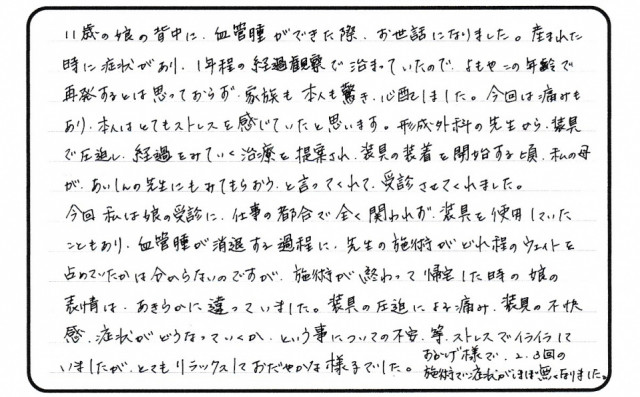 11歳の娘の背中に、血管腫ができた際、お世話になりました。産まれた
時に症状があり、1年程の経過観察で治まっていたので、よもやこの年齢で
再発するとは思っておらず、家族も本人も驚き、心配しました。今回は痛みも
あり、本人はとてもストレスを感じていたと思います。形成外科の先生から、装具
で圧迫し、経過をみていく治療を提案され、装具の装着を開始する頃、私の母
が、あいしんの先生にもみてもらおう、と言ってくれて、受診させてくれました。
今回私は娘の受診に、仕事の都合で全く関われず、装具を使用していた
こともあり、血管腫が消退する過程に、先生の施術がどれ程のウェイトを
占めていたかは分からないのですが、施術が終わって帰宅した時の娘の
表情は、あきらかに違っていました。装具の圧迫による痛み、装具の不快
感、症状がどうなっていくか、という事についての不安、等、ストレスでイライラして
いましたが、とてもリラックスしておだやかな様子でした。おかげ様で、2、3回の
施術で症状がほぼ無くなりました。